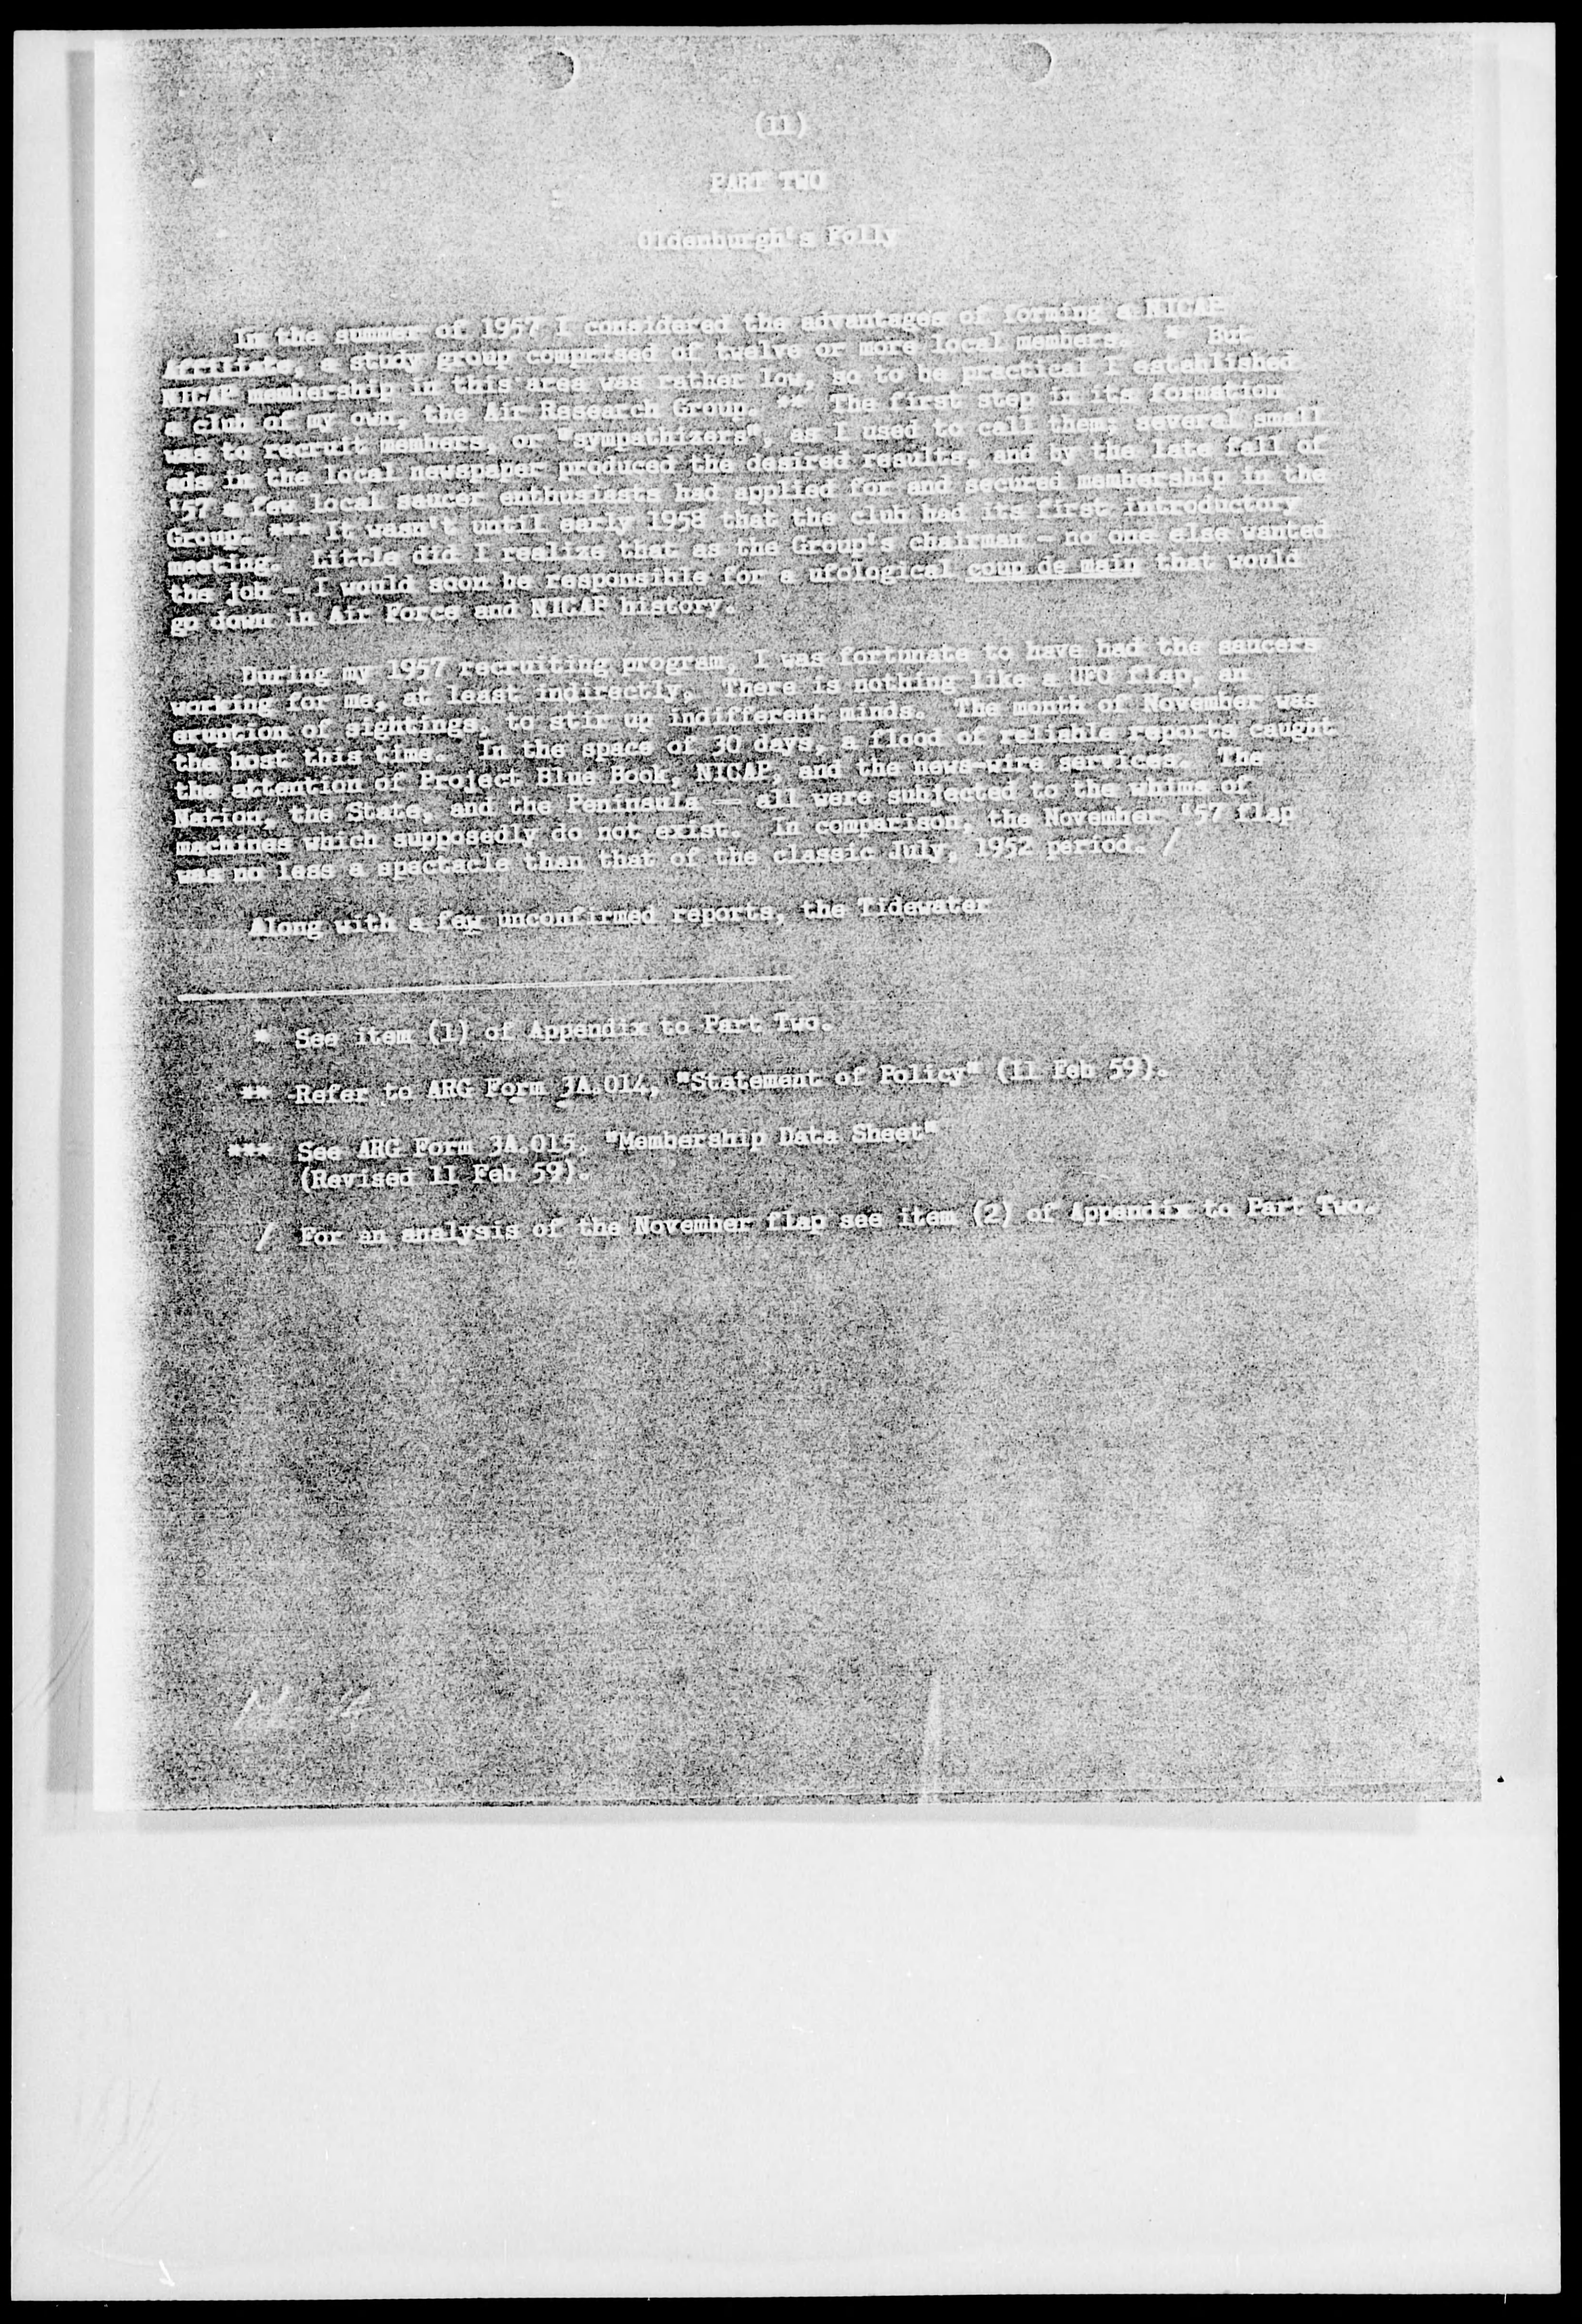 (11)
PART TWO
Oldenburgh's Folly
In the summer of 1957 I considered the advantages of forming a NICAP
Affiliate, a study group comprised of twelve or more local members. * But
NICAP membership in this area was rather low, so to be practical I established
a club of my own, the Air Research Group. ** The first step in its formation
was to recruit members, or "sympathizers", as I used to call them; several small
ads in the local newspaper produced the desired results, and by the late fall of
'57 a few local saucer enthusiasts had applied for and secured membership in the
Group. *** It wasn't until early 1958 that the club had its first introductory
meeting. Little did I realize that as the Group's chairman - no one else wanted
the job - I would soon be responsible for a ufological coup de main that would
go down in Air Force and NICAP history.
During my 1957 recruiting program, I was fortunate to have had the saucers
working for me, at least indirectly. There is nothing like a UFO flap, an
eruption of sightings, to stir up indifferent minds. The month of November was
the host this time. In the space of 30 days, a flood of reliable reports caught
the attention of Project Blue Book, NICAP, and the news-wire services. The
Nation, the State, and the Peninsula — all were subjected to the whims of
machines which supposedly do not exist. In comparison, the November '57 flap
was no less a spectacle than that of the classic July, 1952 period. /
Along with a few unconfirmed reports, the Tidewater
* See item (1) of Appendix to Part Two.
** Refer to ARG Form 3A.014, "Statement of Policy" (11 Feb 59).
*** See ARG Form 3A.015, "Membership Data Sheet"
(Revised 11 Feb 59).
/ For an analysis of the November flap see item (2) of Appendix to Part Two.